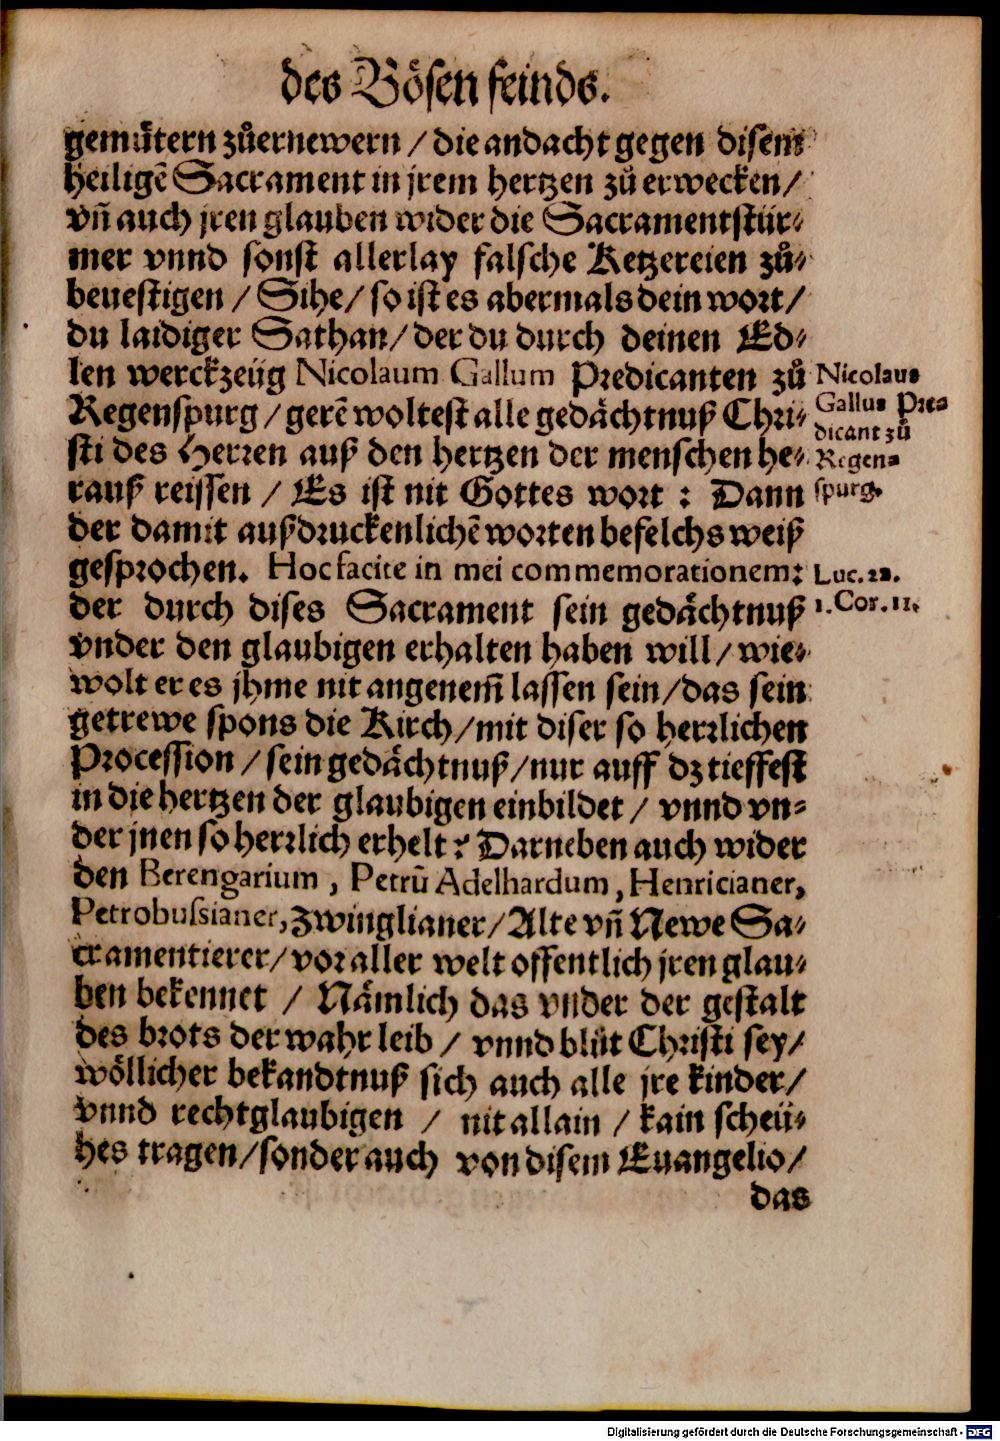 des Boͤsen feinds.
gemuͤtern zůernewern / die andacht gegen disem
heiligẽ Sacrament in jrem hertzen zů erwecken /
vñ auch jren glauben wider die Sacramentstür⸗
mer vnnd sonst allerlay falsche Ketzereien zů⸗
beuestigen / Sihe / so ist es abermals dein wort /
du laidiger Sathan / der du durch deinen Ed⸗
len werckzeüg Nicolaum Gallum Predicanten zů
Regenspurg / gerẽ woltest alle gedaͤchtnuß Chri⸗
sti des Herren auß den hertzen der menschen he⸗
rauß reissen / Es ist nit Gottes wort : Dann
der damit außdruckenlichẽ worten befelchs weiß
gesprochen. Hoc facite in mei commemorationem:
der durch dises Sacrament sein gedaͤchtnuß
vnder den glaubigen erhalten haben will / wie⸗
wolt er es jhme nit angenem̃ lassen sein / das sein
getrewe spons die Kirch / mit diser so herrlichen
Procession / sein gedaͤchtnuß / nur auff dz tieffest
in die hertzen der glaubigen einbildet / vnnd vn⸗
der jnen so herrlich erhelt? Darneben auch wider
den Berengarium, Petrũ Adelhardum, Henricianer,
Petrobussianer, Zwinglianer / Alte vñ Newe Sa⸗
cramentierer / vor aller welt offentlich jren glau⸗
ben bekennet / Naͤmlich das vnder der gestalt
des brots der wahr leib / vnnd blůt Christi sey /
woͤllicher bekandtnuß sich auch alle jre kinder /
vnnd rechtglaubigen / nit allain / kain scheü⸗
hes tragen / sonder auch von disem Euangelio /
das
Nicolaus
Gallus Pre⸗
dicant zů
Regen⸗
spurg.
Luc. 22.
1. Cor. 11.
Digitalisierung gefördert durch die Deutsche Forschungsgemeinschaft - DFG